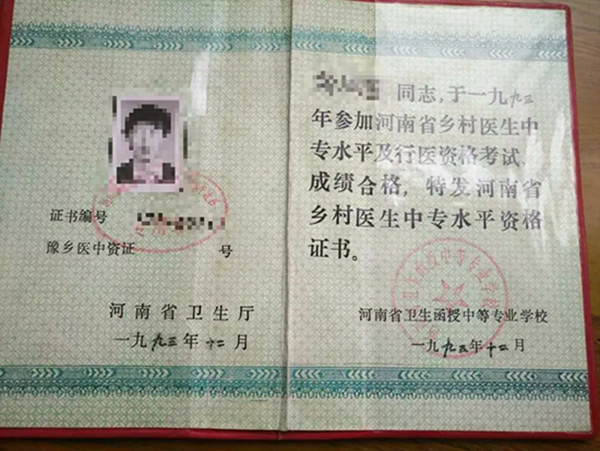 证书编号
豫乡医中资证 号
河南省卫生厅
一九九三年十二月
同志,于一九九三
年参加河南省乡村医生中
专水平及行医资格考试、
成绩合格,特发河南省
乡村医生中专水平资格
证书。
河南省卫生函授中等专业学校
一九九三年十二月